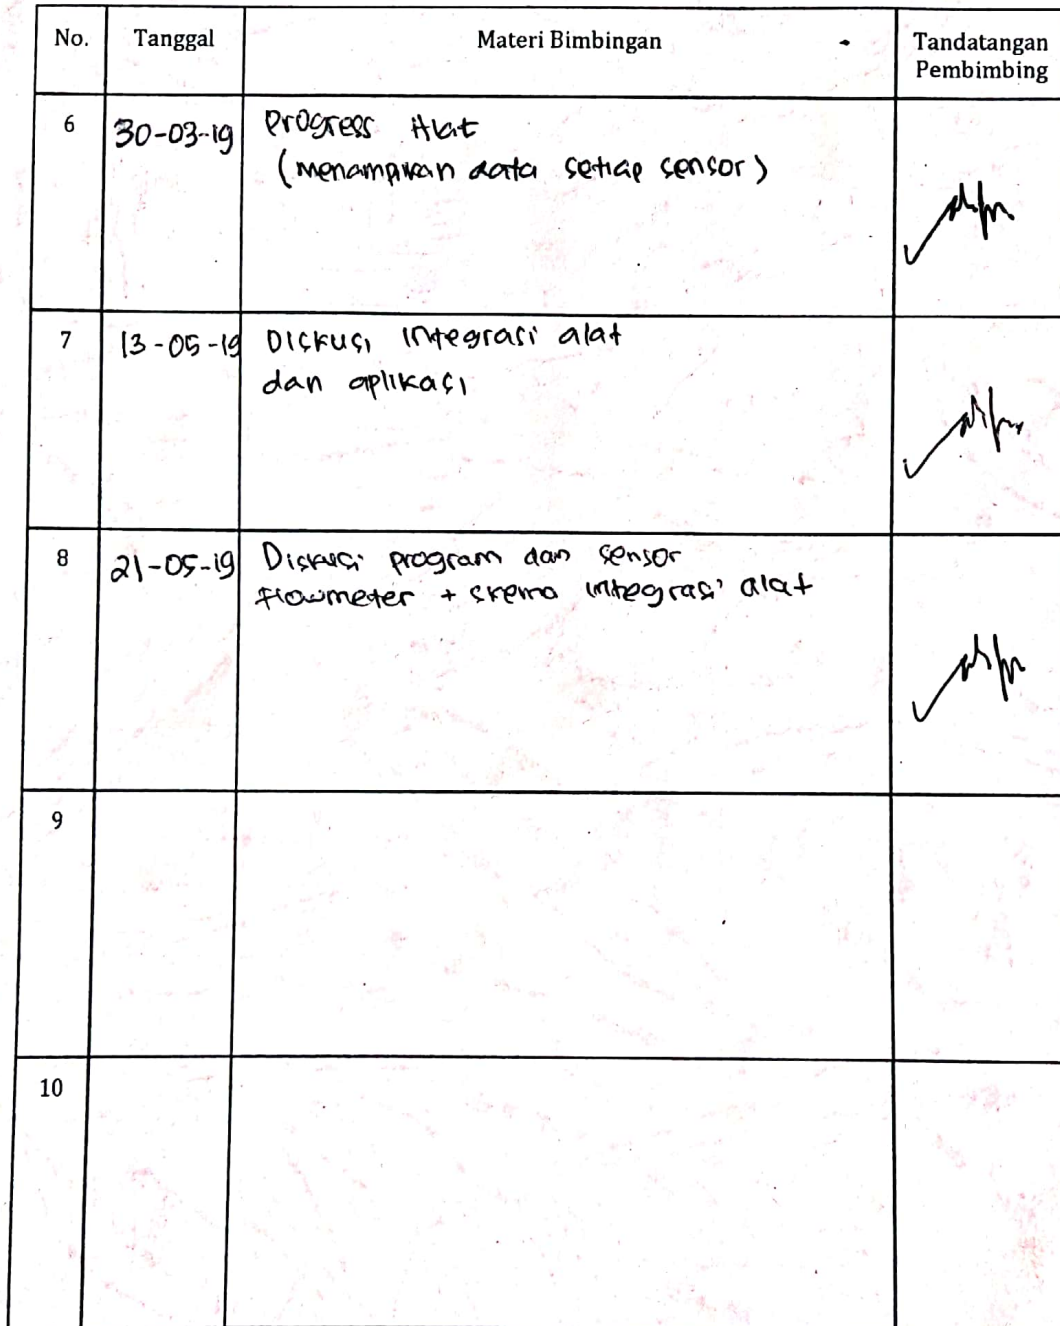 No. Tanggal Materi Bimbingan Tandatangan
Pembimbing
6 30-03-19 Progress Alat
(menampilkan data setiap sensor)
7 13-05-19 Diskusi integrasi alat
dan aplikasi
8 21-05-19 Diskusi program dan sensor
flowmeter + skema integrasi alat
9
10